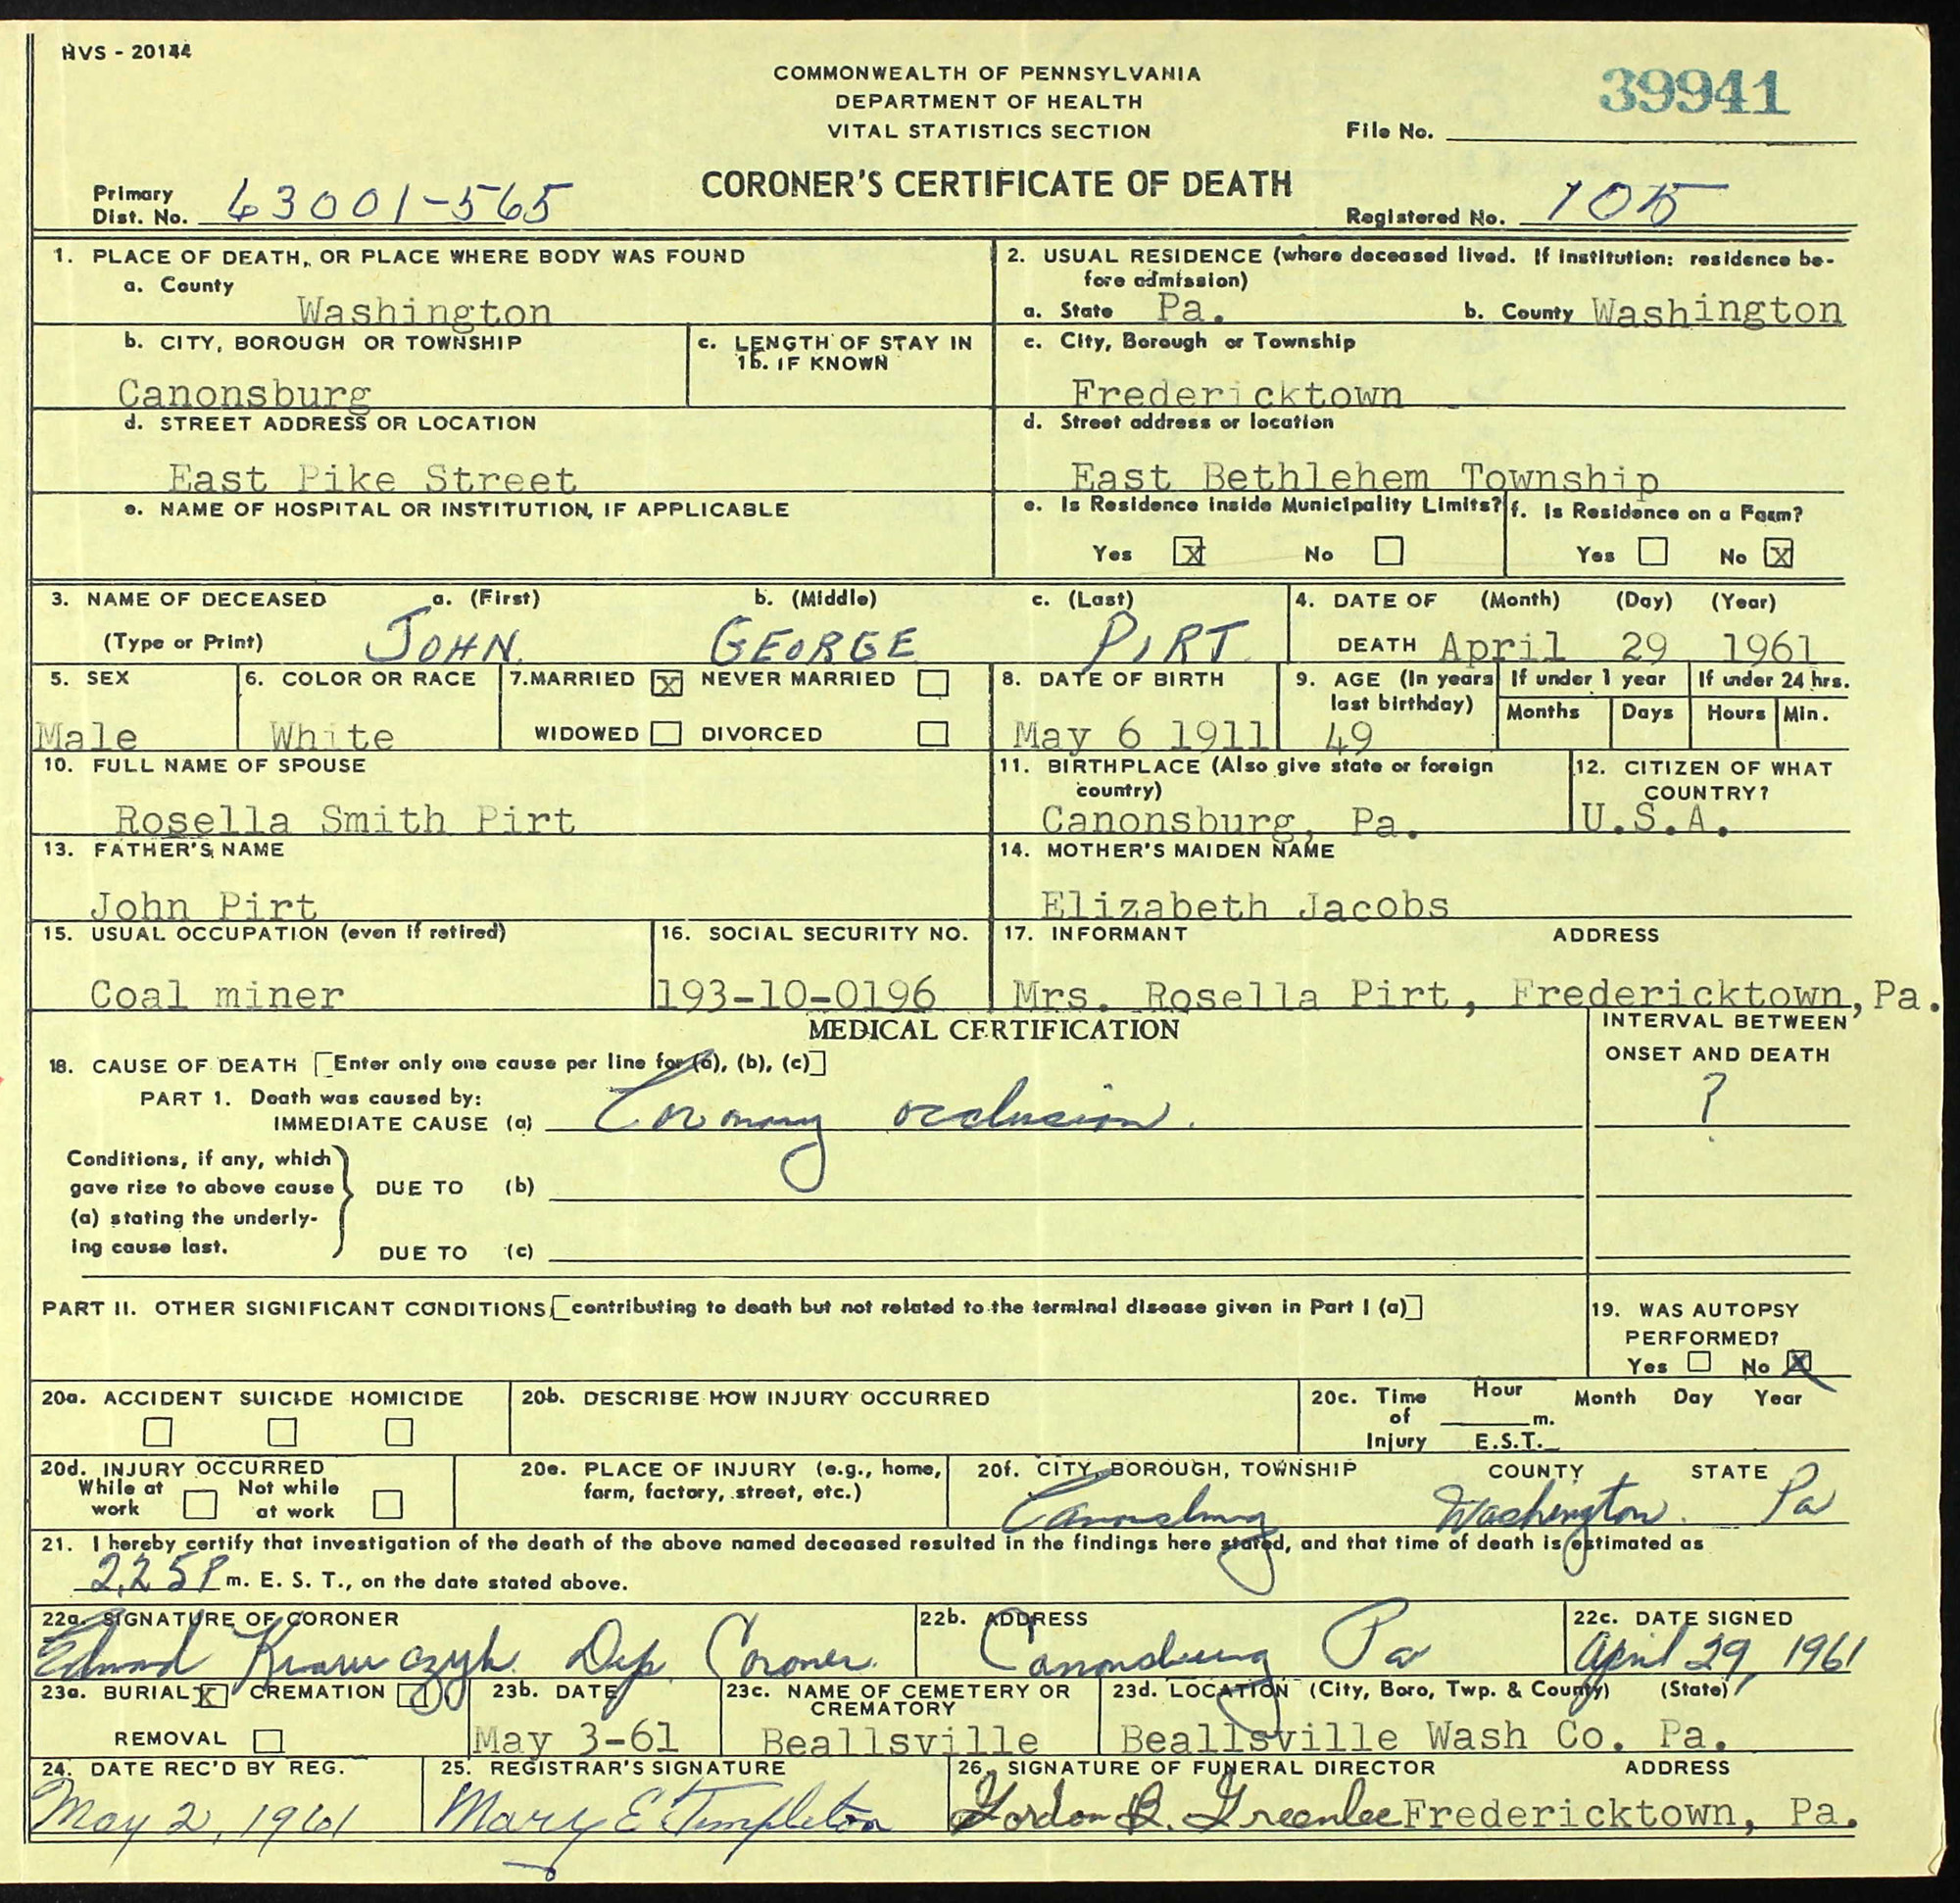 HVS - 20144
COMMONWEALTH OF PENNSYLVANIA
DEPARTMENT OF HEALTH
VITAL STATISTICS SECTION
39941
File No.
CORONER'S CERTIFICATE OF DEATH
Primary
Dist. No. 63001-565
Registered No. 105
1. PLACE OF DEATH, OR PLACE WHERE BODY WAS FOUND
a. County
Washington
2. USUAL RESIDENCE (where deceased lived. If institution: residence be-
fore admission)
a. State Pa. b. County Washington
b. CITY, BOROUGH OR TOWNSHIP
Canonsburg
c. LENGTH OF STAY IN
1b. IF KNOWN
c. City, Borough or Township
Fredericktown
d. STREET ADDRESS OR LOCATION
East Pike Street
d. Street address or location
East Bethlehem Township
e. NAME OF HOSPITAL OR INSTITUTION, IF APPLICABLE
e. Is Residence inside Municipality Limits?
Yes X No
f. Is Residence on a Farm?
Yes No X
3. NAME OF DECEASED a. (First) b. (Middle) c. (Last)
(Type or Print) JOHN GEORGE PIRT
4. DATE OF (Month) (Day) (Year)
DEATH April 29 1961
5. SEX
Male
6. COLOR OR RACE
White
7. MARRIED X NEVER MARRIED
WIDOWED DIVORCED
8. DATE OF BIRTH
May 6 1911
9. AGE (In years
last birthday)
49
If under 1 year
Months Days
If under 24 hrs.
Hours Min.
10. FULL NAME OF SPOUSE
Rosella Smith Pirt
11. BIRTHPLACE (Also give state or foreign
country)
Canonsburg, Pa.
12. CITIZEN OF WHAT
COUNTRY?
U.S.A.
13. FATHER'S NAME
John Pirt
14. MOTHER'S MAIDEN NAME
Elizabeth Jacobs
15. USUAL OCCUPATION (even if retired)
Coal miner
16. SOCIAL SECURITY NO.
193-10-0196
17. INFORMANT ADDRESS
Mrs. Rosella Pirt, Fredericktown, Pa.
MEDICAL CERTIFICATION
INTERVAL BETWEEN
ONSET AND DEATH
18. CAUSE OF DEATH [Enter only one cause per line for (a), (b), (c)]
PART 1. Death was caused by:
IMMEDIATE CAUSE (a) Coronary occlusion. ?
Conditions, if any, which
gave rise to above cause
(a) stating the underly-
ing cause last.
DUE TO (b)
DUE TO (c)
PART II. OTHER SIGNIFICANT CONDITIONS [contributing to death but not related to the terminal disease given in Part I (a)]
19. WAS AUTOPSY
PERFORMED?
Yes No X
20a. ACCIDENT SUICIDE HOMICIDE
20b. DESCRIBE HOW INJURY OCCURRED
20c. Time
of
Injury
Hour Month Day Year
m.
E.S.T.
20d. INJURY OCCURRED
While at
work
Not while
at work
20e. PLACE OF INJURY (e.g., home,
farm, factory, street, etc.)
20f. CITY, BOROUGH, TOWNSHIP COUNTY STATE
Canonsburg Washington. Pa
21. I hereby certify that investigation of the death of the above named deceased resulted in the findings here stated, and that time of death is estimated as
2:25P m. E. S. T., on the date stated above.
22a. SIGNATURE OF CORONER
Edward Krawczyk Dep. Coroner.
22b. ADDRESS
Canonsburg Pa
22c. DATE SIGNED
April 29, 1961
23a. BURIAL X CREMATION
REMOVAL
23b. DATE
May 3-61
23c. NAME OF CEMETERY OR
CREMATORY
Beallsville
23d. LOCATION (City, Boro, Twp. & County) (State)
Beallsville Wash Co. Pa.
24. DATE REC'D BY REG.
May 2, 1961
25. REGISTRAR'S SIGNATURE
Mary E Templeton
26. SIGNATURE OF FUNERAL DIRECTOR ADDRESS
Gordon B. Greenlee Fredericktown, Pa.